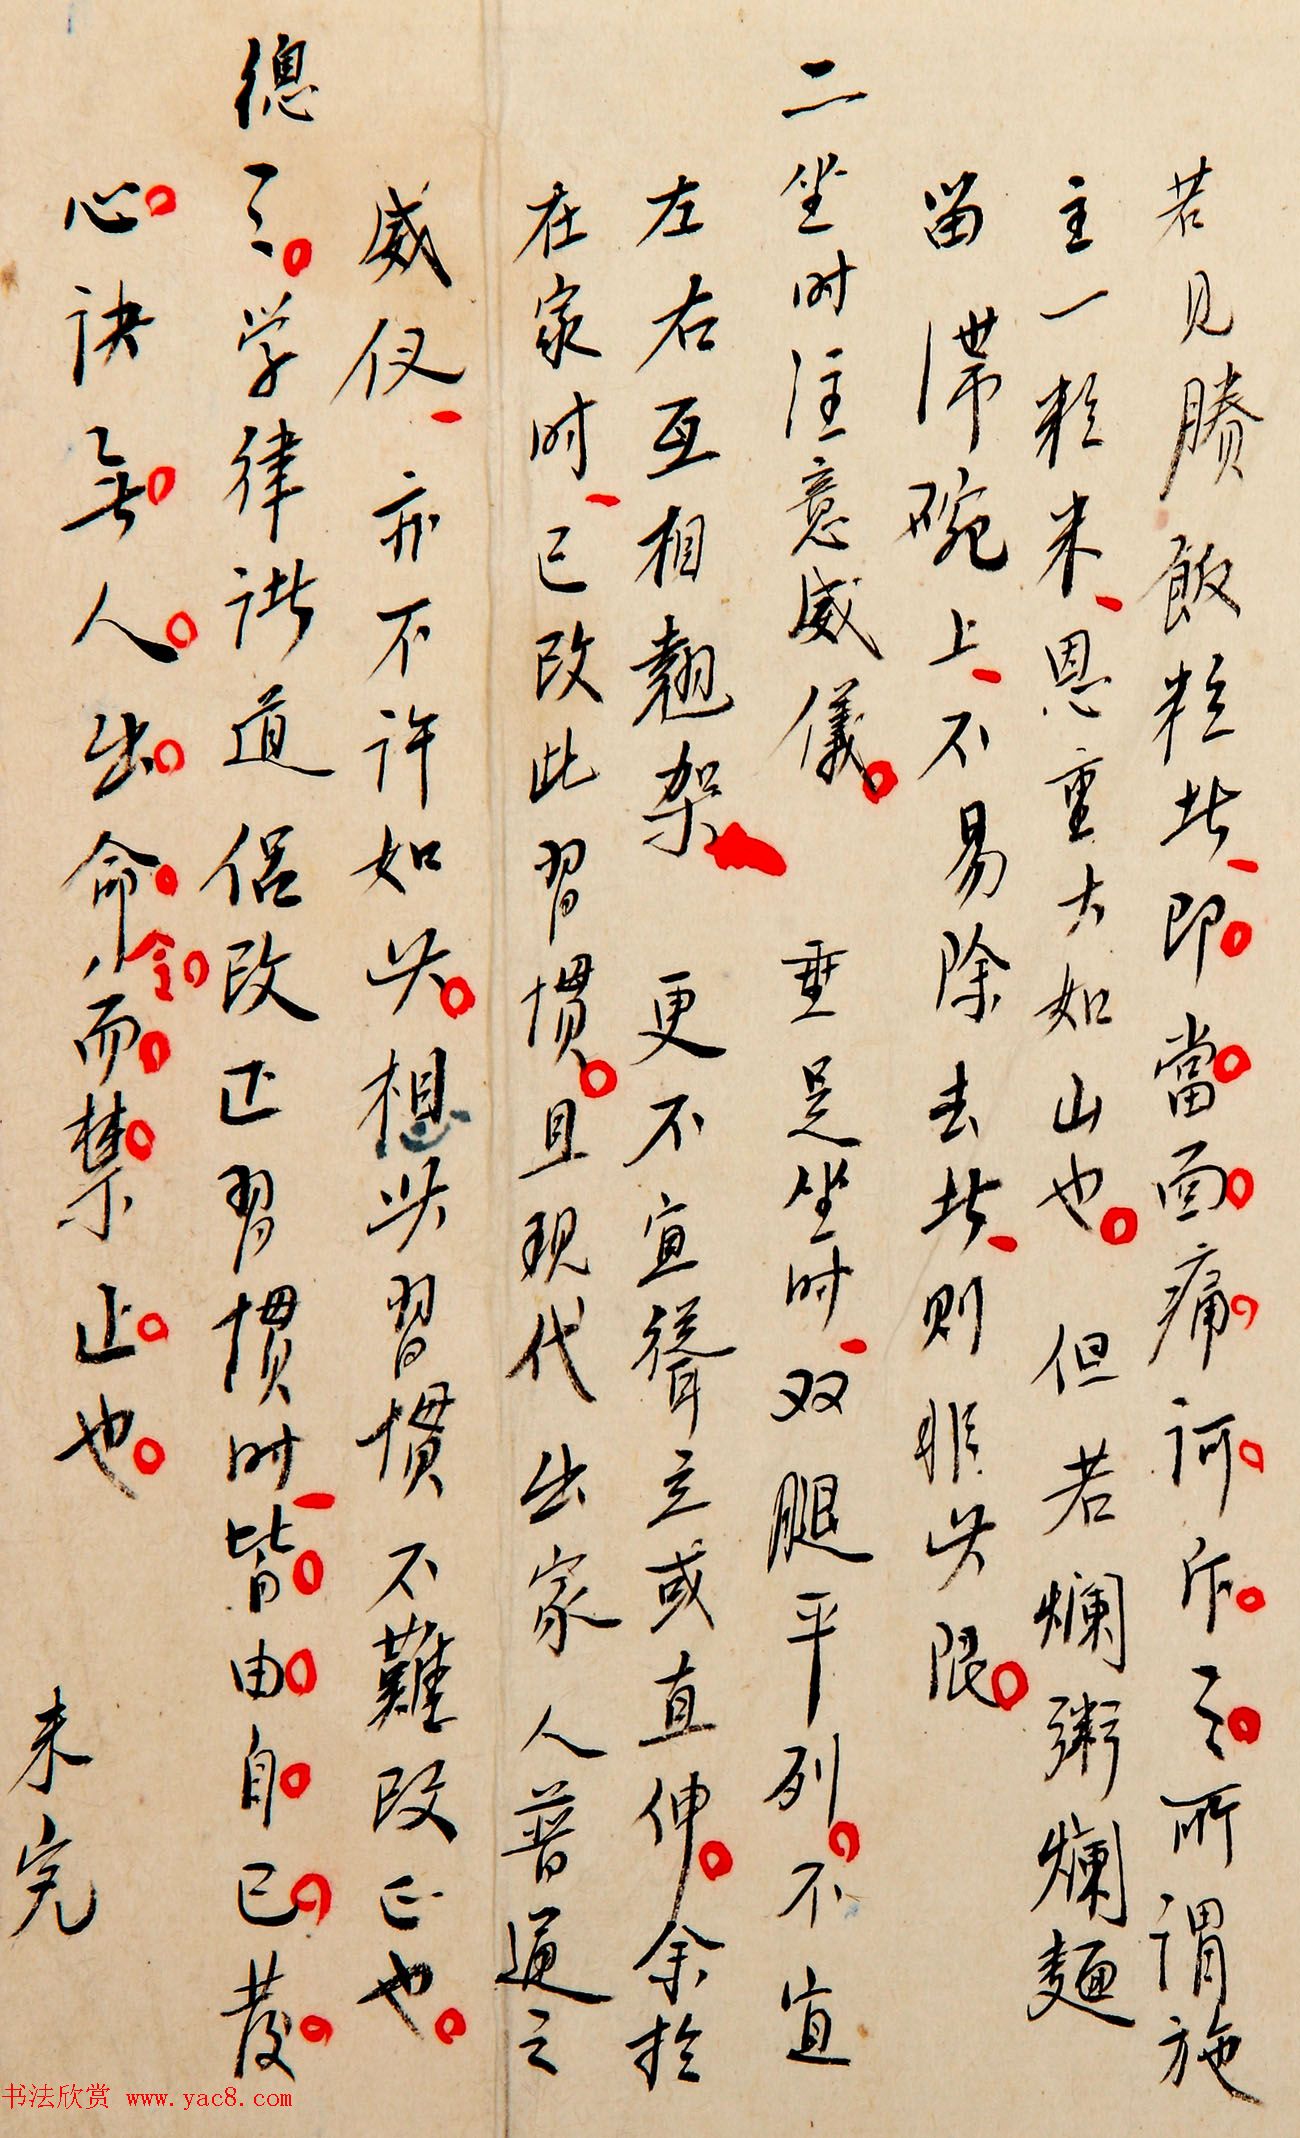 若見賸飯粒者、即當面痛訶斥之所謂施
主一粒米、恩重大如山也。但若爛粥爛麵
留滯碗上、不易除去者、則非此限。
二坐时注意威儀。垂足坐时、双腿平列。不宜
左右互相翹架 更不宜聳立或直伸。余於
在家时、已改此習慣。且現代出家人普通之
威仪、亦不许如此。想此習慣不難改正也。
總之。学律诸道侣改正習慣时、皆由自己發
心。决無人出命令而禁止也。
未完
书法欣赏 www.yac8.com